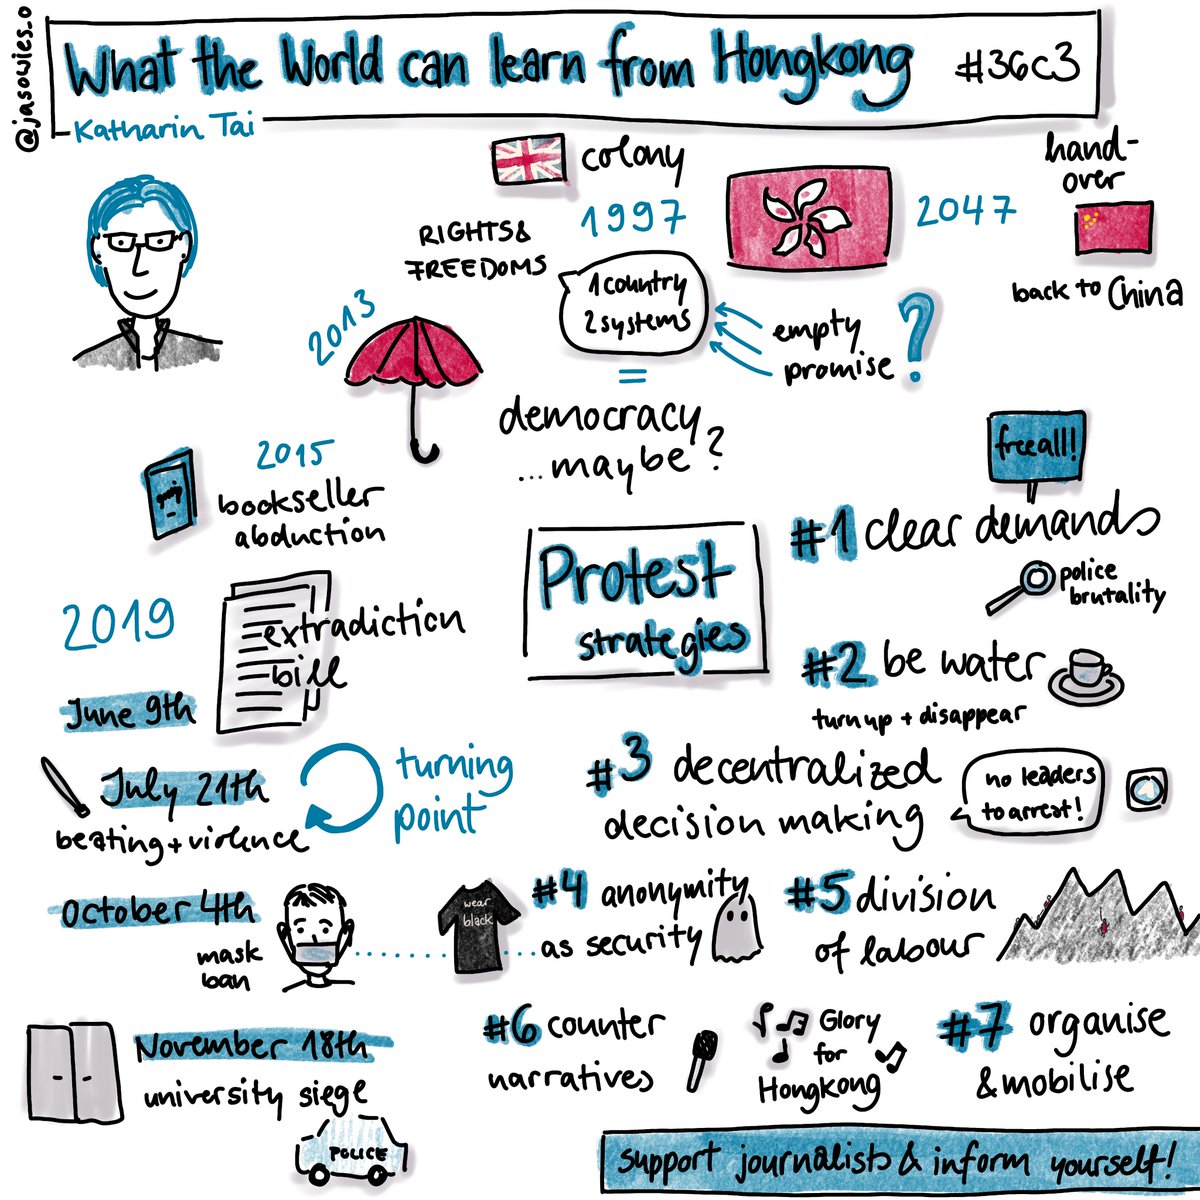 @jasowies_o
What the World can learn from Hongkong #36c3
Katharin Tai
colony
1997
RIGHTS &
FREEDOMS
1 country
2 systems
=
democracy
...maybe?
empty
promise ?
2047
hand-
over
back to China
2013
2015
bookseller
abduction
2019
extradiction
bill
June 9th
July 21th
beating + violence
turning
point
October 4th
mask
ban
November 18th
university siege
POLICE
Protest
strategies
free all!
#1 clear demands
police
brutality
#2 be water
turn up + disappear
#3 decentralized
decision making
no leaders
to arrest!
wear
black
#4 anonymity
as security
#5 division
of labour
#6 counter
narratives
Glory
for
Hongkong
#7 organise
& mobilise
support journalists & inform yourself!